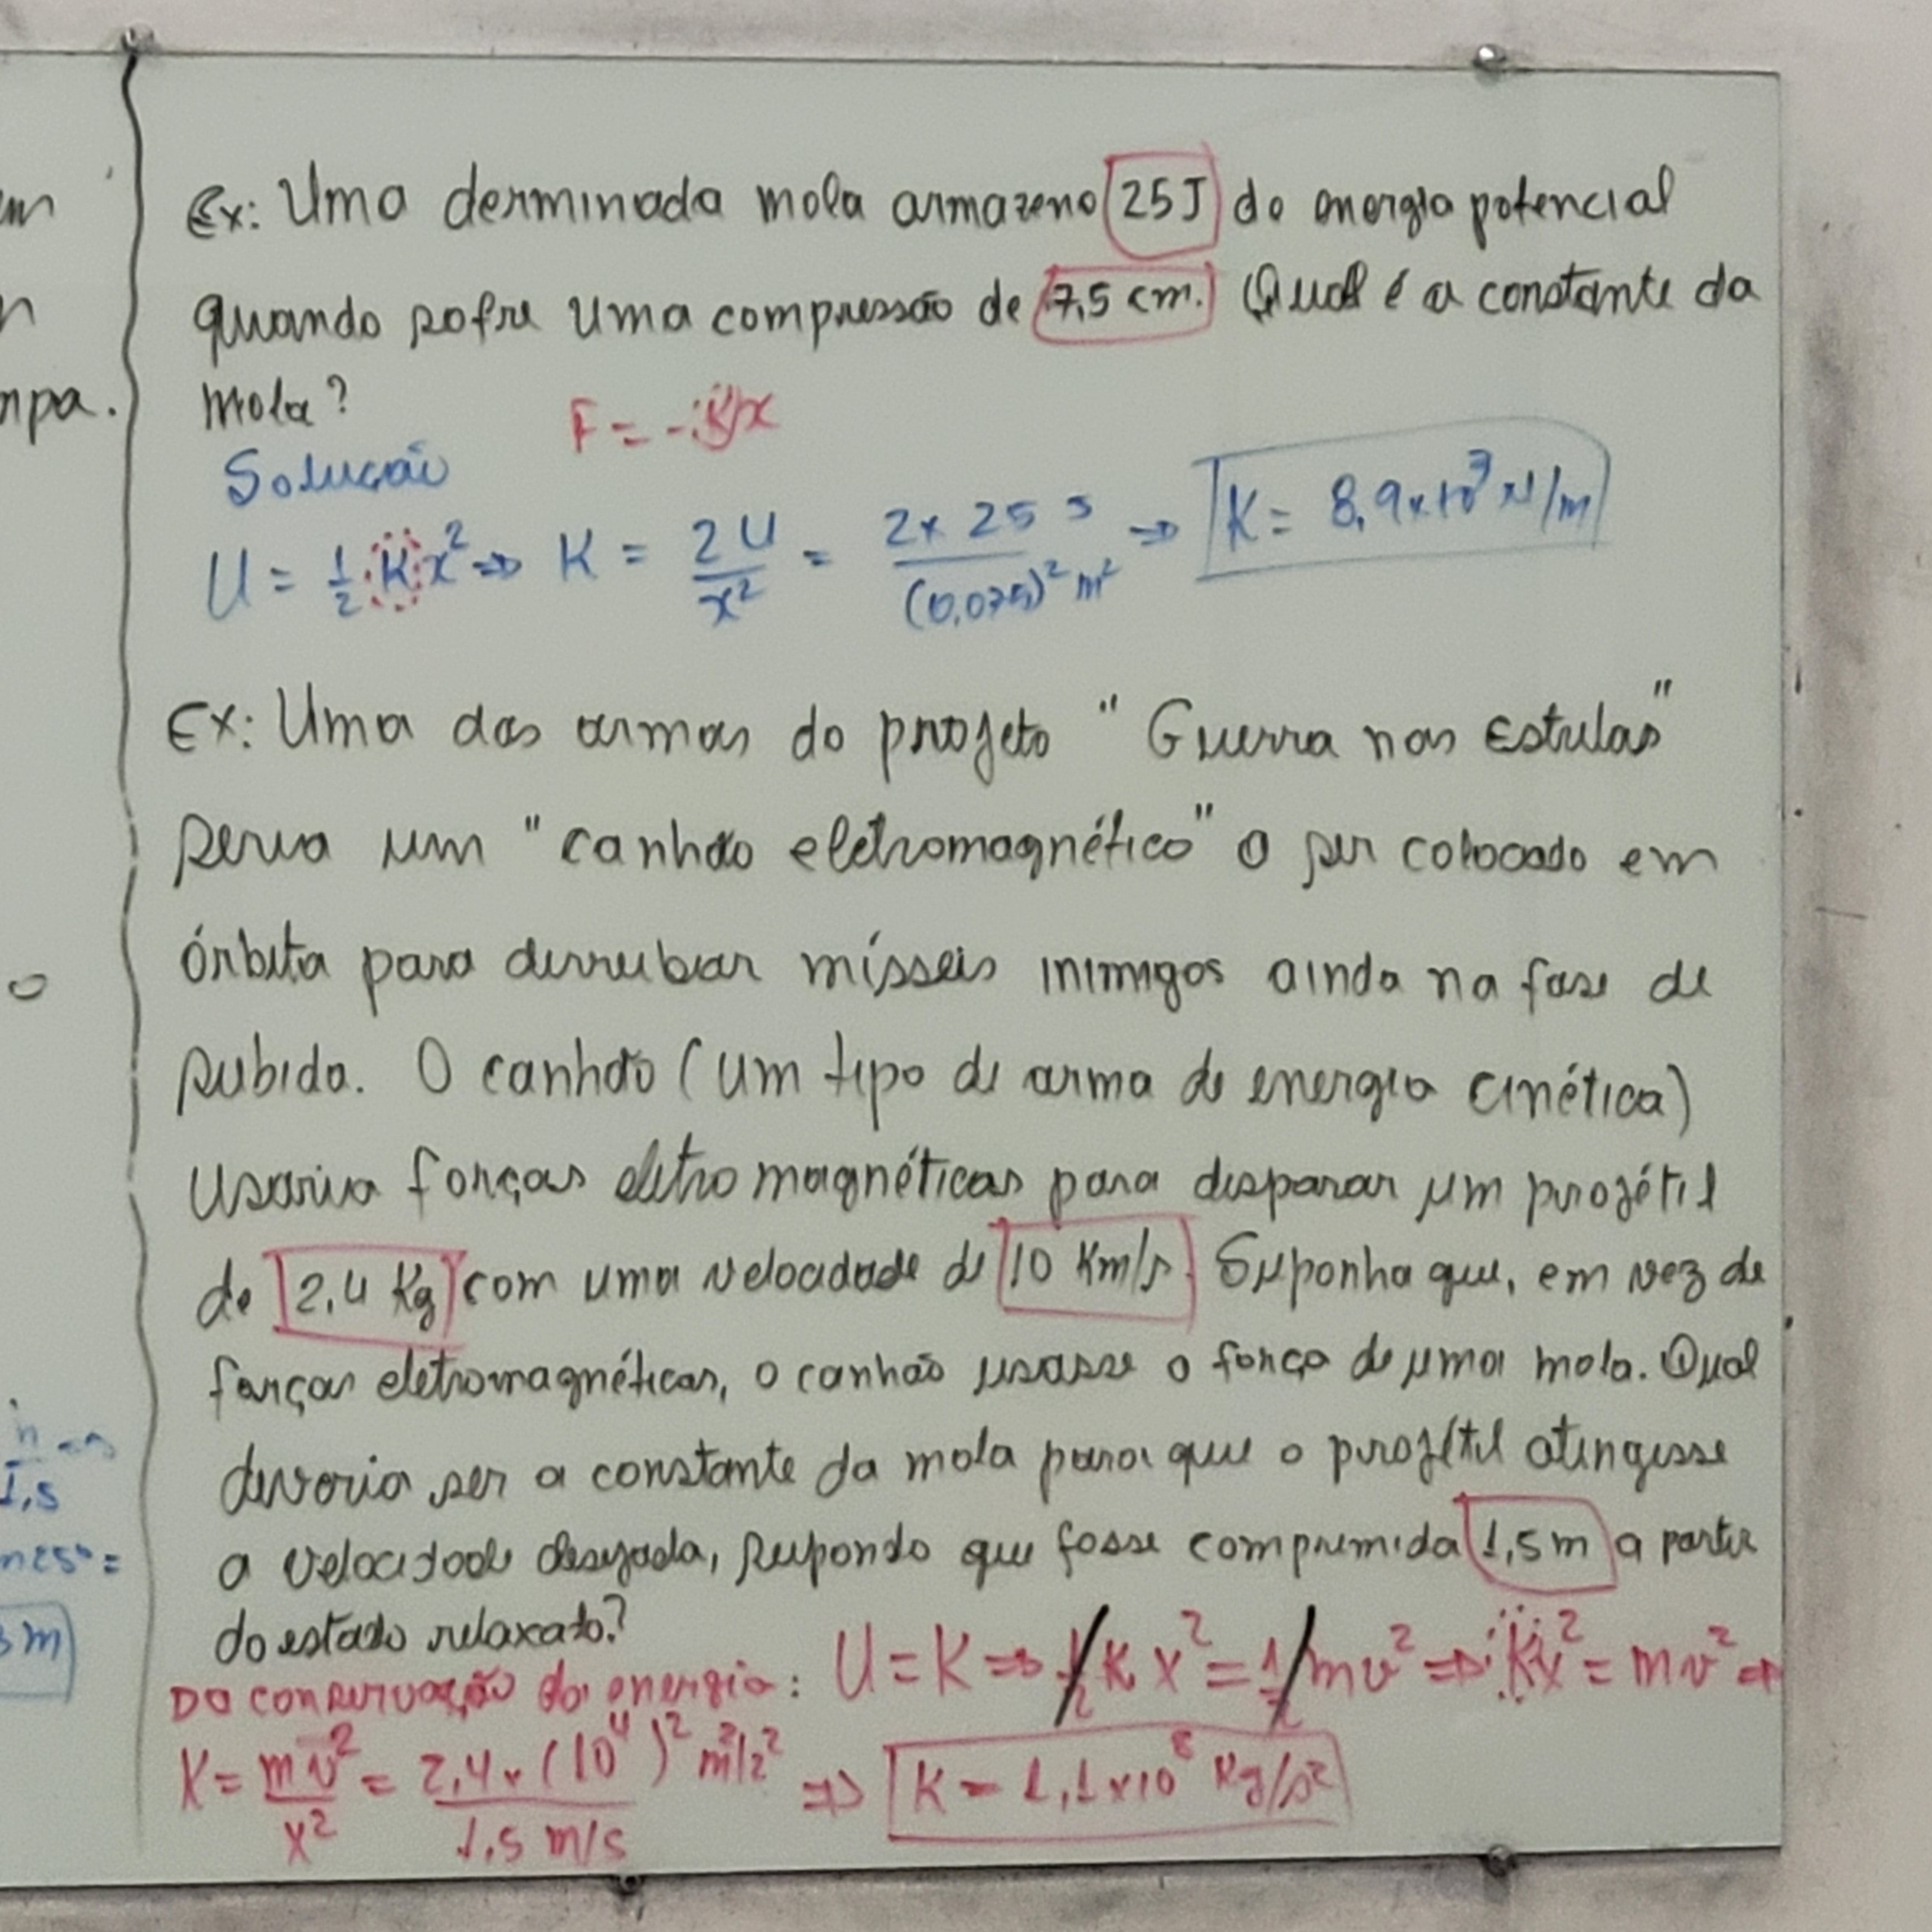 Ex: Uma derminada mola armazena 25J de energia potencial
quando sofre uma compressão de 7,5 cm. Qual é a constante da
mola?
F = -Kx
Solução
U = 1/2 K x² => K = 2U/x² = 2x 25 J/(0,075)² m² => K = 8,9x10³ N/m
Ex: Uma das armas do projeto "Guerra nas Estrelas"
seria um "canhão eletromagnético" a ser colocado em
órbita para derrubar mísseis inimigos ainda na fase de
subida. O canhão (um tipo de arma de energia cinética)
usaria forças eletromagnéticas para disparar um projétil
de 2,4 Kg com uma velocidade de 10 Km/s. Suponha que, em vez de
forças eletromagnéticas, o canhão usasse a força de uma mola. Qual
deveria ser a constante da mola para que o projétil atingisse
a velocidade desejada, supondo que fosse comprimida 1,5 m a partir
do estado relaxato?
Da conservação da energia: U = K => 1/2 K x² = 1/2 mv² => Kx² = mv² =>
K = mv²/x² = 2,4x (10⁴)² m²/s²/1,5 m/s => K = 1,1x10⁸ Kg/s²
em
n
mpa.
o
h
1,5
m25° =
3 m